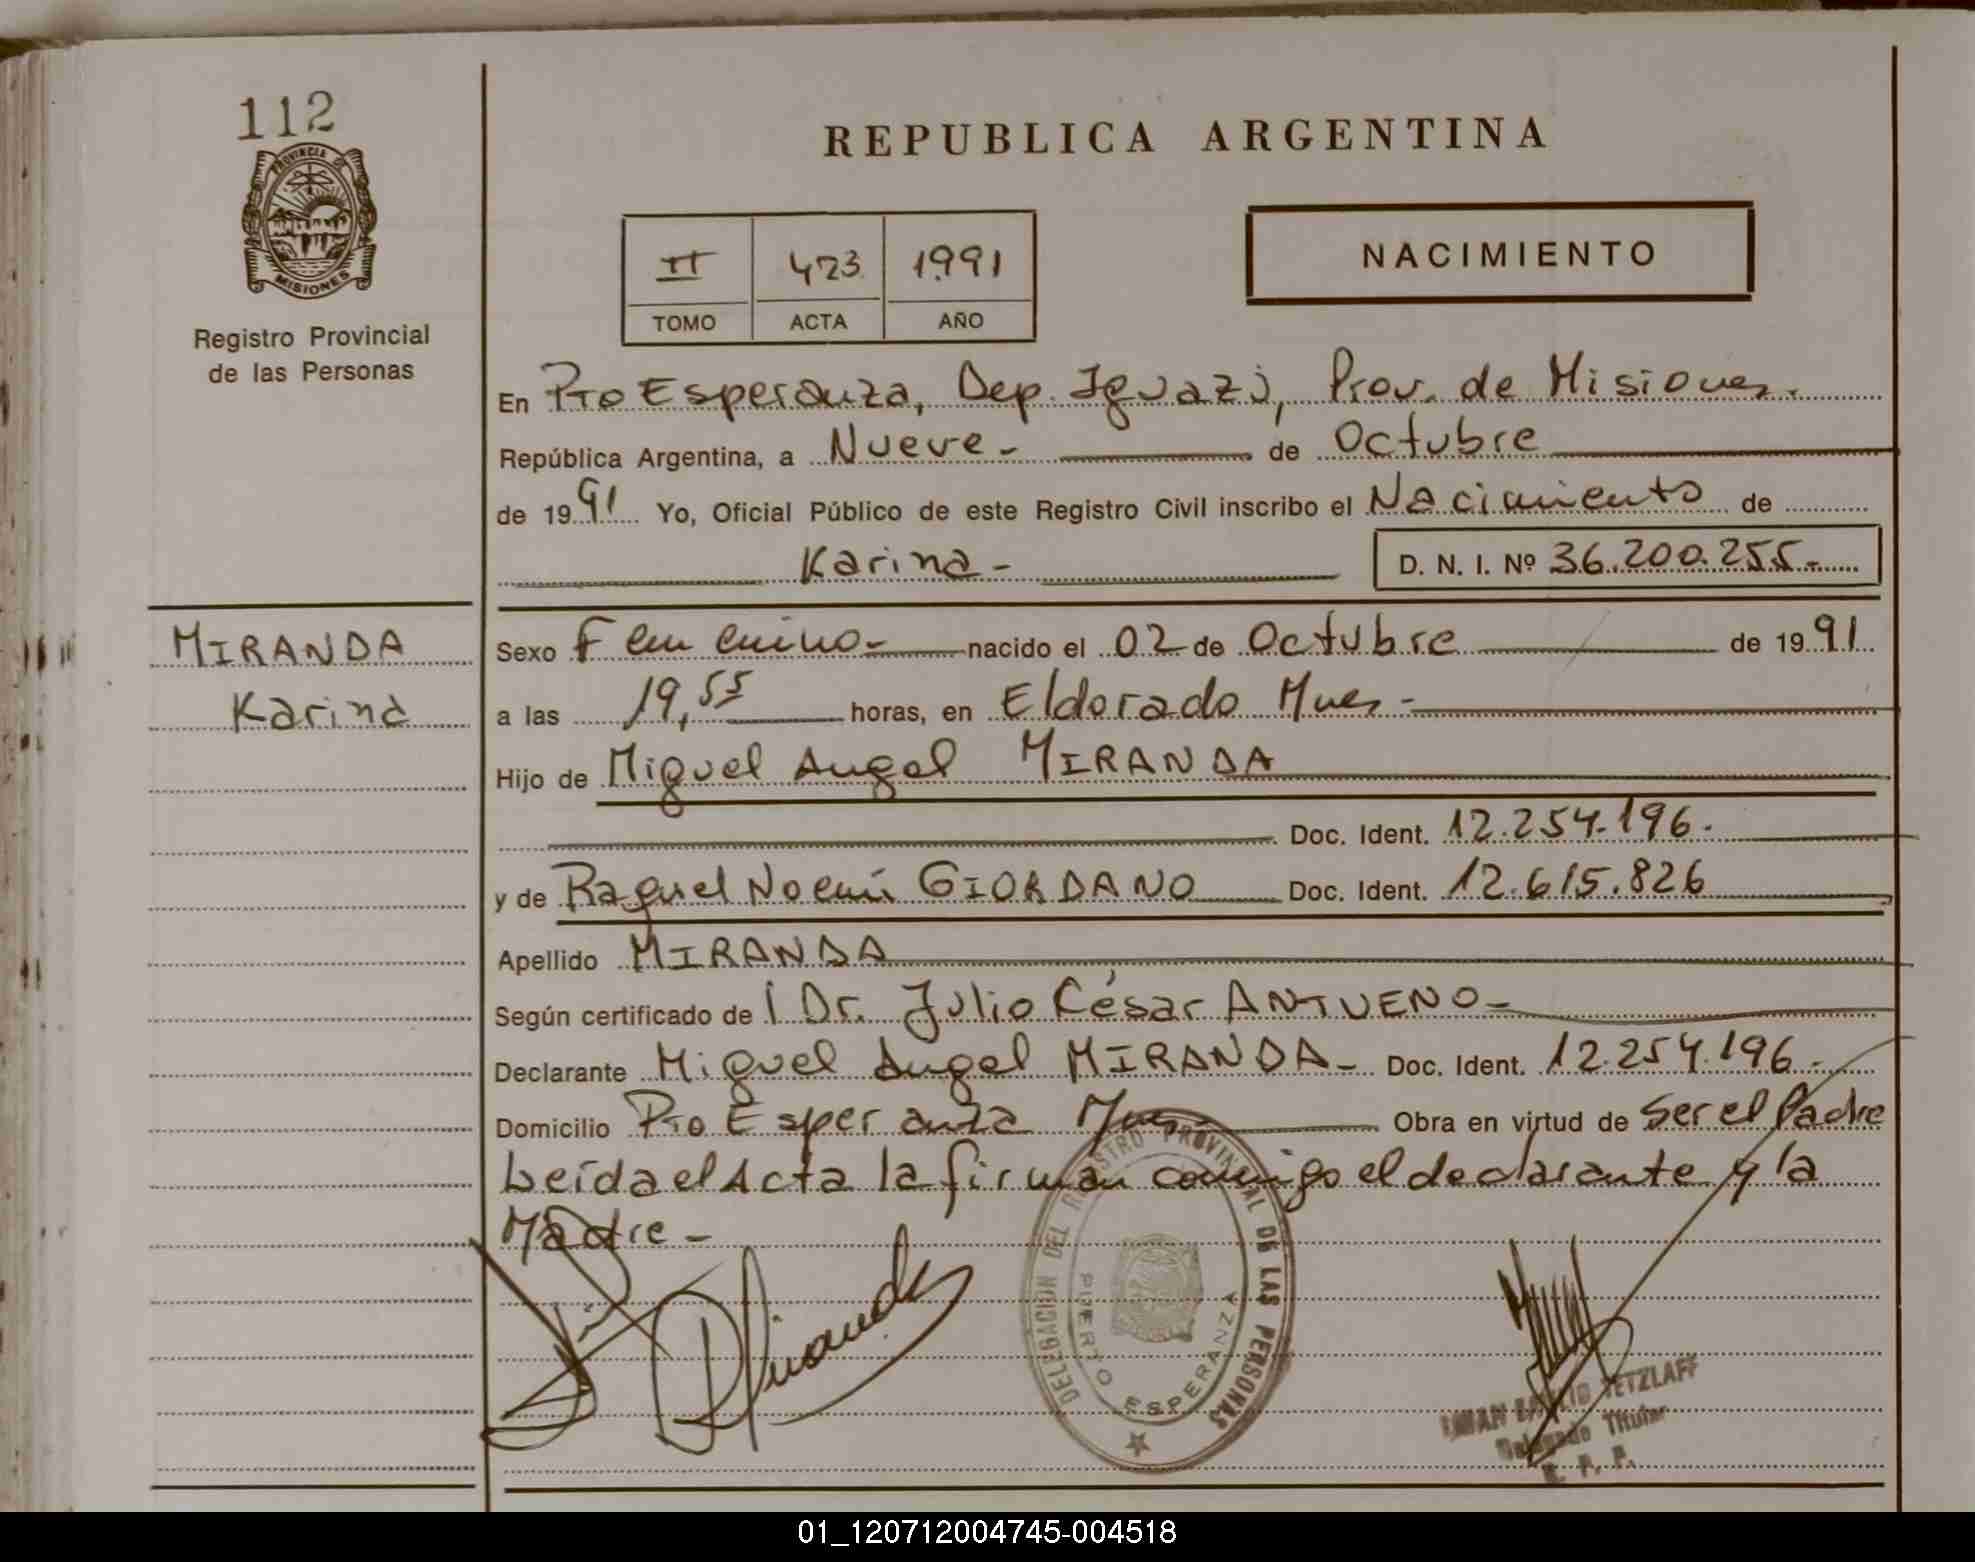 112
PROVINCIA DE
MISIONES
Registro Provincial
de las Personas
REPUBLICA ARGENTINA
II 423 1991
TOMO ACTA AÑO
NACIMIENTO
En Pto Esperanza, Dep. Iguazú, Prov. de Misiones.
República Argentina, a Nueve- de Octubre
de 1991 Yo, Oficial Público de este Registro Civil inscribo el Nacimiento de
Karina- D. N. I. Nº 36.200.255.-
MIRANDA
Karina
Sexo Femenino- nacido el 02 de Octubre de 1991
a las 19,55 horas, en Eldorado Mnes-
Hijo de Miguel Angel MIRANDA
Doc. Ident. 12.254.196.
y de Raquel Noemí GIORDANO Doc. Ident. 12.615.826
Apellido MIRANDA
Según certificado de l Dr. Julio César ANTUENO-
Declarante Miguel Angel MIRANDA- Doc. Ident. 12.254.196.-
Domicilio Pto Esperanza Mnes Obra en virtud de Ser el Padre
Leída el Acta la firman conmigo el declarante y la
Madre-
DELEGACION DEL REGISTRO PROVINCIAL DE LAS PERSONAS
PUERTO ESPERANZA
TETZLAFF
Delegado Titular
R. P. P.
01_120712004745-004518